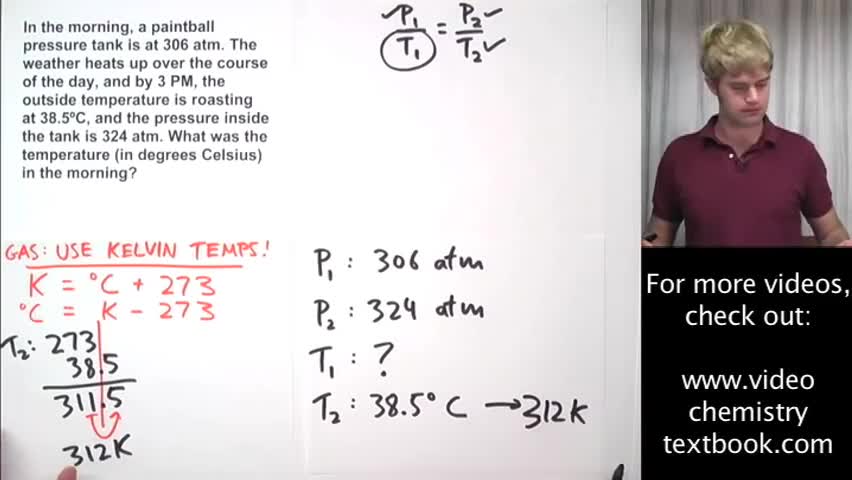 In the morning, a paintball
pressure tank is at 306 atm. The
weather heats up over the course
of the day, and by 3 PM, the
outside temperature is roasting
at 38.5ºC, and the pressure inside
the tank is 324 atm. What was the
temperature (in degrees Celsius)
in the morning?
P₁ = P₂
T₁ T₂
GAS: USE KELVIN TEMPS!
K = °C + 273
°C = K - 273
T₂: 273
38.5
311.5
312K
P₁ : 306 atm
P₂ : 324 atm
T₁ : ?
T₂ : 38.5° C → 312K
For more videos,
check out:
www.video
chemistry
textbook.com